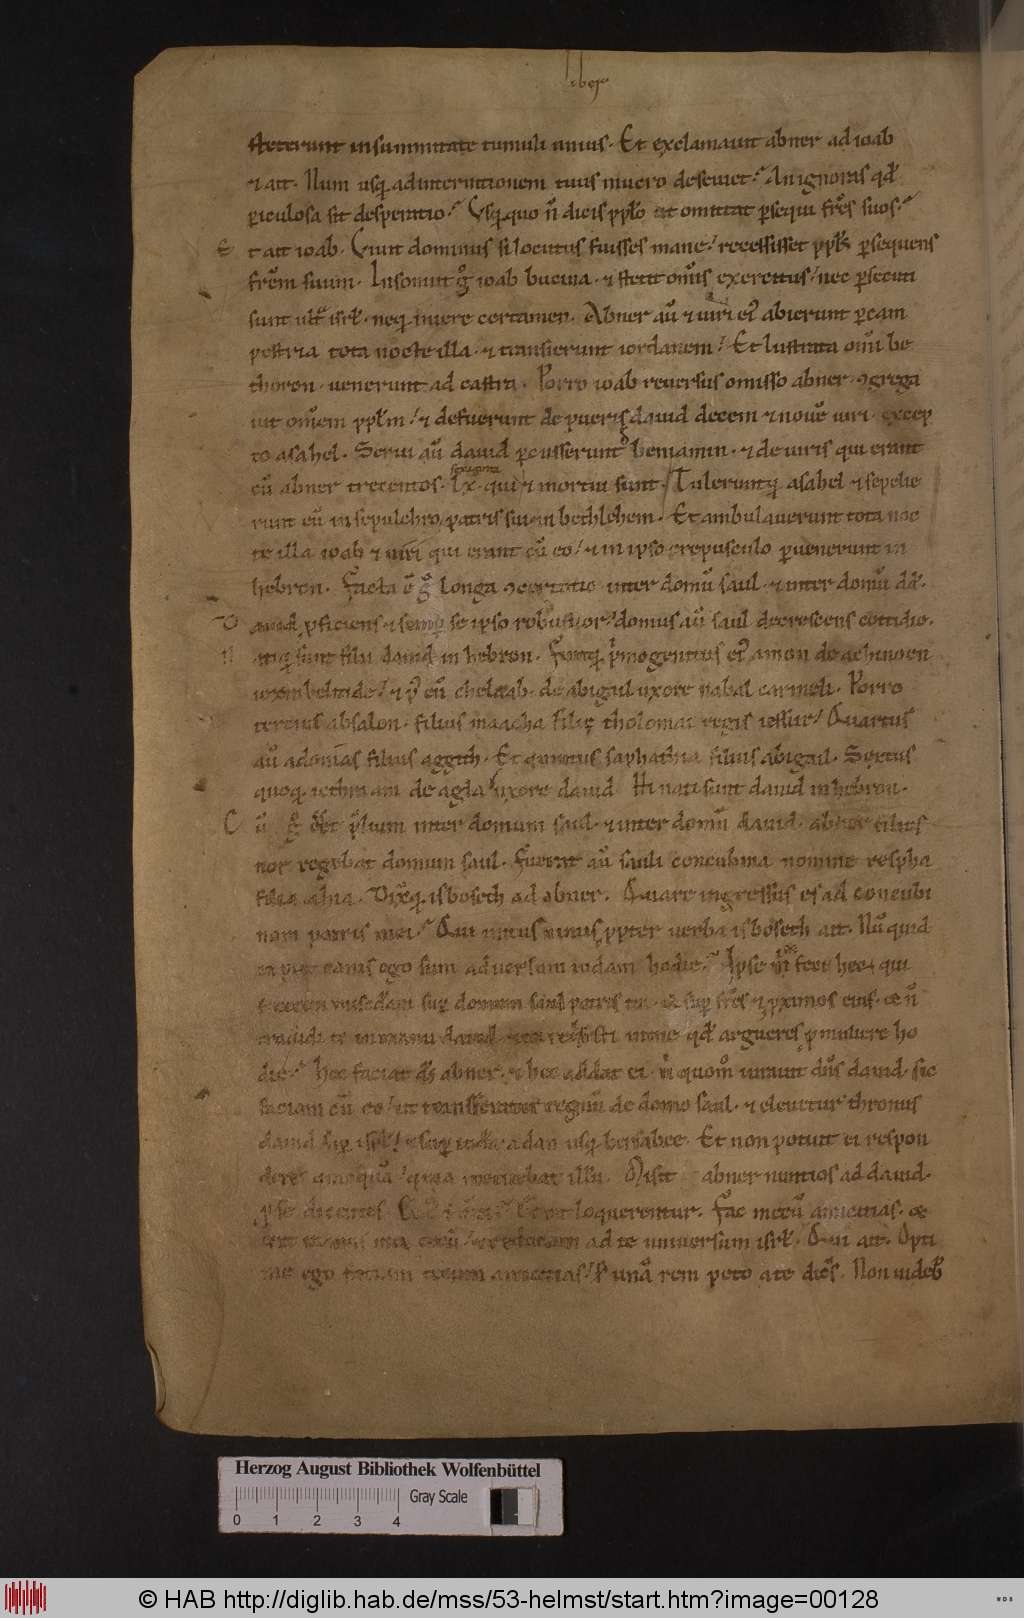 liber
steterunt in summitate tumuli unius. Et exclamavit abner ad ioab
& ait. Num usq; ad internitionem tuus mucro deseviet? An ignoras qd̕
periculosa sit desperatio? Usq; quo n̄ dicis pplo ut omittat p̱sequi fr̄es suos?
E t ait ioab. Vivit dominus si locutus fuisses mane / recessisset ppl̕s p̱sequens
fr̄em suum. Insonuit g̊ ioab bucina. & stetit om̄is exercitus / nec p̱secuti
sunt ult̄ isrl̕. neq; iniere certamen. Abner aū & viri ei' abierunt p̱ cam
pestria tota nocte illa. & transierunt iordanem / Et lustrata om̄i be
thoron. venerunt ad castra. Porro ioab reversus omisso abner. ↄgrega
vit om̄em ppl̄m / & defuerunt de pueris david decem & novē viri. excep
to asahel. Servi aū david p̱cusserunt beniamin. & de viris qui erant
sexaginta
cū abner trecentos. lx. qui & mortui sunt. Tuleruntq; asahel & sepelie
runt eū in sepulchro patris sui in bethlehem. Et ambulaverunt tota noc
te illa ioab & viri qui erant cū eo / & in ipso crepusculo p̱venerunt in
hebron. Facta ē g̊ longa ↄcertatio inter domū saul & inter domū dd̕.
D avid p̱ficiens & semp̱ se ipso robustior / domus aū saul decrescens cottidie.
N atiq; sunt filii david in hebron. Fuitq; p̓mogenitus ei' amon de achinoen
iezrahelitide / & p̱' eū cheleab. de abigail uxore nabal carmeli. Porro
tercius absalon. filius maacha filię tholomai regis iessur / Quartus
aū adonias filius aggith. Et quintus saphathia filius abigail. Sextus
quoq; iethraam de agla uxore david Hi nati sunt david in hebron.
C ū g̊ eēt p̄lium inter domum saul. & inter domū david. abner filius
ner regebat domum saul. Fuerat aū sauli concubina nomine respha
filia ahia. Dixitq; isboseth ad abner. Quare ingressus es ad concubi
nam patris mei? Qui iratus nimis ppter verba isboseth ait. Nū quid
caput canis ego sum adversum iudam hodie? qui
fecerim misericordiam sup̱ domum saul patris tui. & sup̱ fr̄es & p̱ximos eius. & n̄
tradidi te in manu david & tu requisisti in me qd̕ argueres p̱ muliere ho
die? Hec faciat ds̄ abner. & hec addat ei. n̓ quom̊ iuravit dn̄s david. sic
faciam cū eo / ut transferatur regnū de domo saul. & elevetur thronus
david sup̱ isrl̕ / & sup̱ iuda a dan usq; bersabee. Et non potuit ei respon
dere quicquā / quia metuebat illū. Misit abner nuntios ad david.
p̱ se dicentes loquerentur. Fac mecū amicitias. &
erit manus mea tecū / & reducam ad te universum isrl̕. Qui ait. Opti
me ego faciam tecum amicitias / s; unā rem peto a te dicēs. Non videb̓
Herzog August Bibliothek Wolfenbüttel
Gray Scale
0 1 2 3 4
© HAB http://diglib.hab.de/mss/53-helmst/start.htm?image=00128